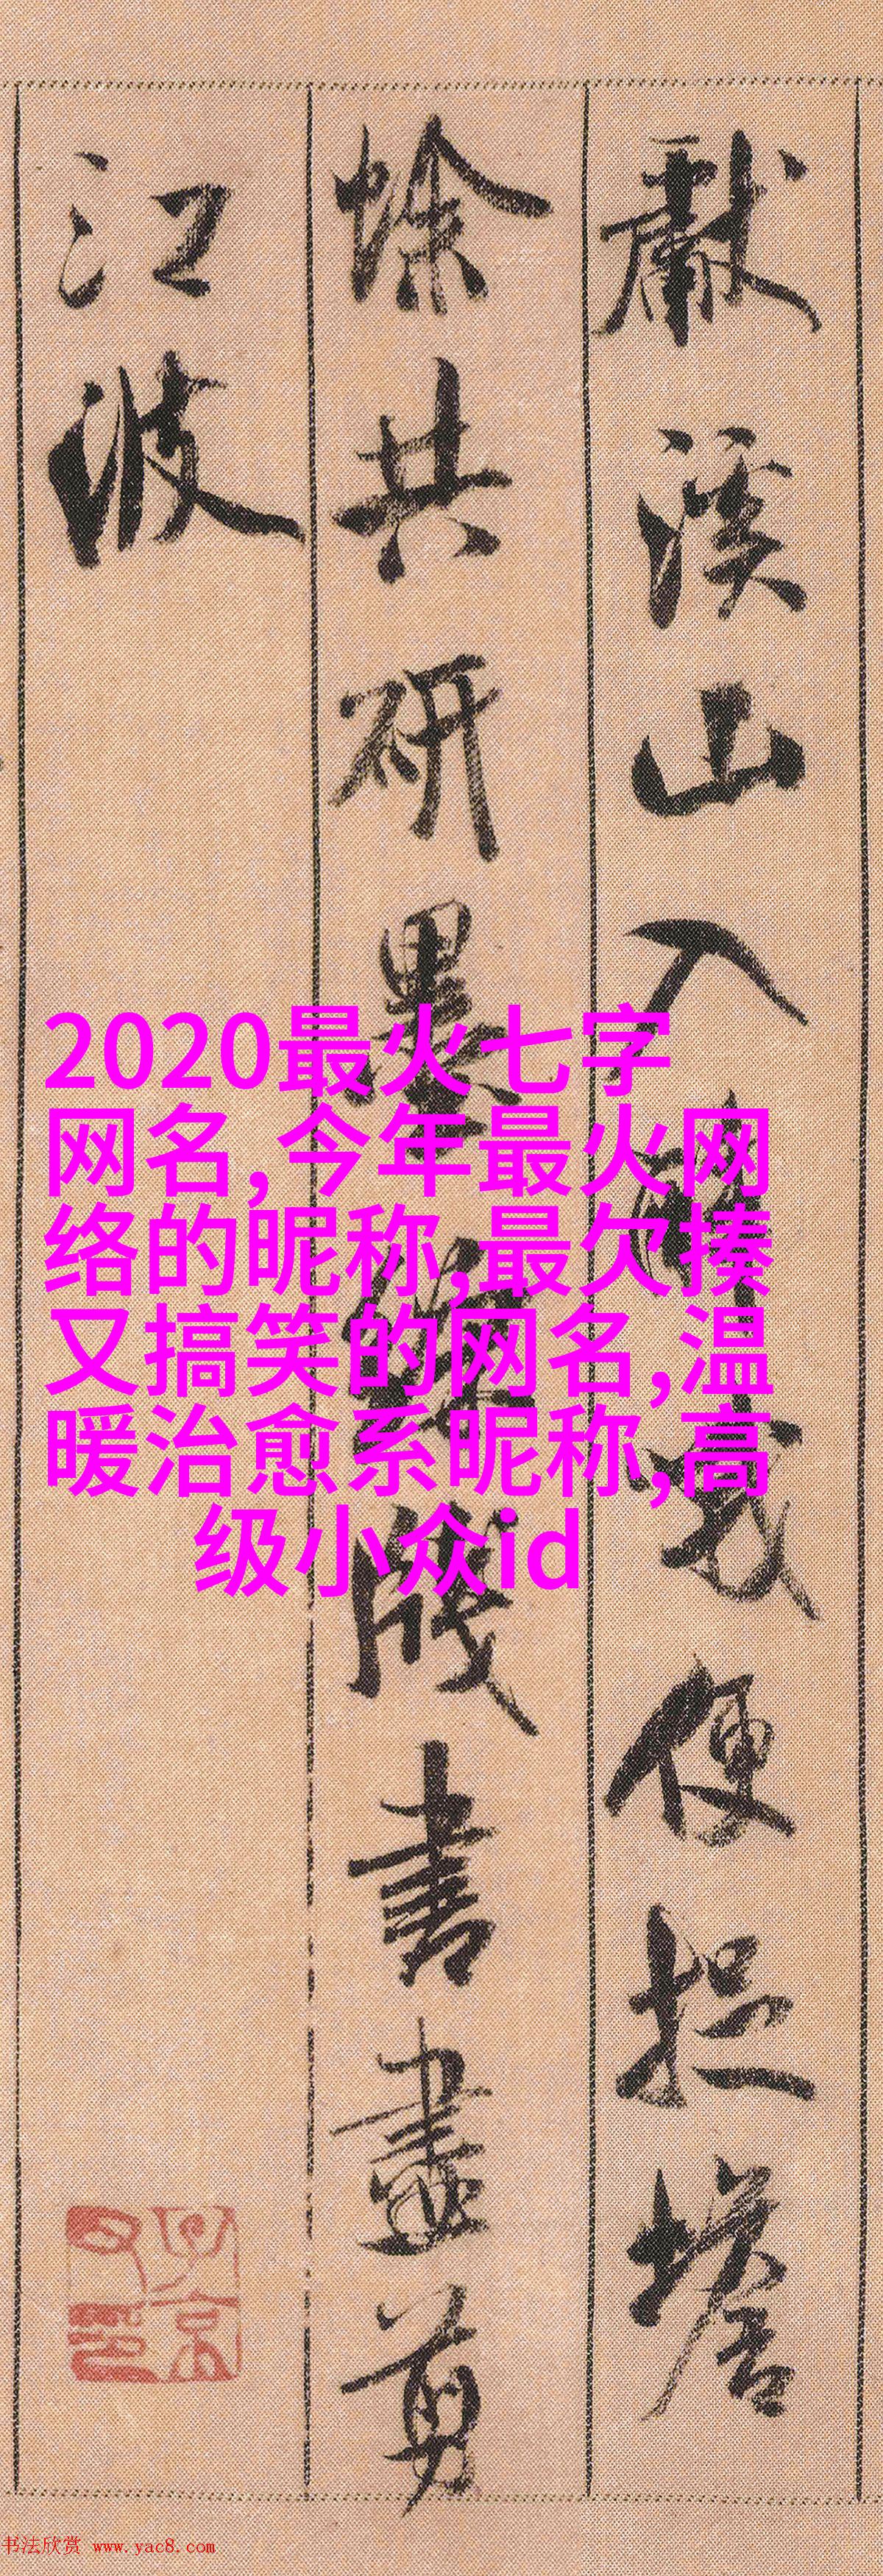 獻溪山入
便捉
共研墨
牋書畫剪
江波
2020最火七字
网名,今年最火网
络的昵称,最欠揍
又搞笑的网名,温
暖治愈系昵称,高
级小众id
书法欣赏 www.yac8.com